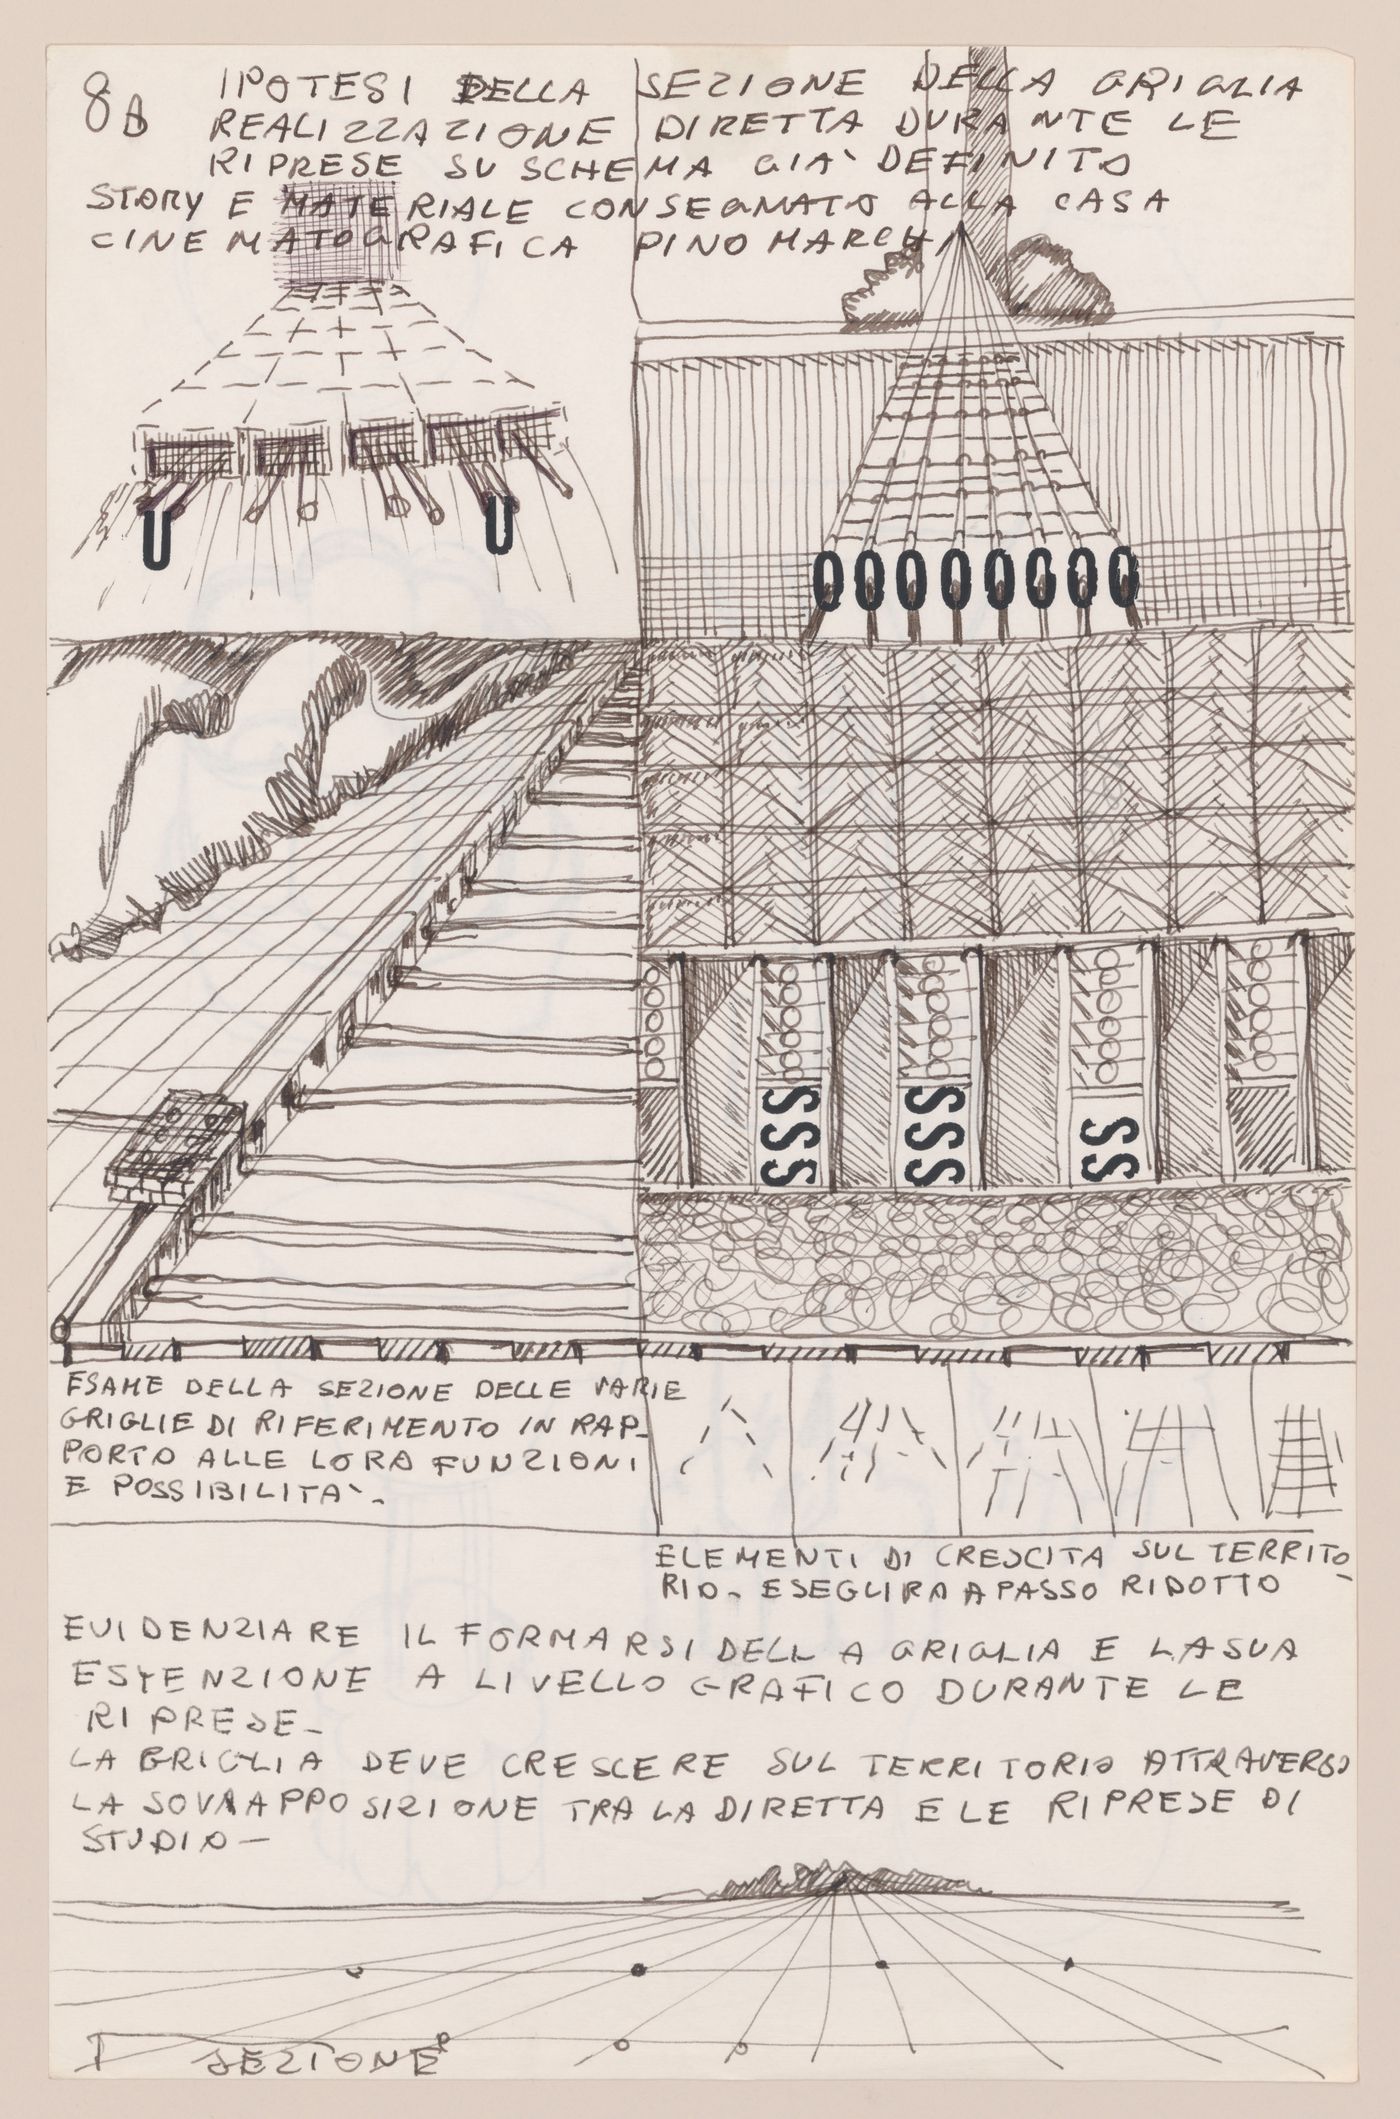 8A IPOTESI DELLA SEZIONE DELLA GRIGLIA
REALIZZAZIONE DIRETTA DURANTE LE
RIPRESE SU SCHEMA GIA' DEFINITO
STORY E MATERIALE CONSEGNATO ALLA CASA
CINEMATOGRAFICA PINO MARCHI
U U
0 0 0 0 0 0 0 0
SSS SSS SS
ESAME DELLA SEZIONE DELLE VARIE
GRIGLIE DI RIFERIMENTO IN RAP-
PORTO ALLE LORO FUNZIONI
E POSSIBILITA'-
ELEMENTI DI CRESCITA SUL TERRITO-
RIO- A PASSO RIDOTTO
EVIDENZIARE IL FORMARSI DELLA GRIGLIA E LA SUA
ESTENZIONE A LIVELLO GRAFICO DURANTE LE
RIPRESE-
LA GRIGLIA DEVE CRESCERE SUL TERRITORIO ATTRAVERSO
LA SOVRAPPOSIZIONE TRA LA DIRETTA E LE RIPRESE DI
STUDIO-
I SEZIONE